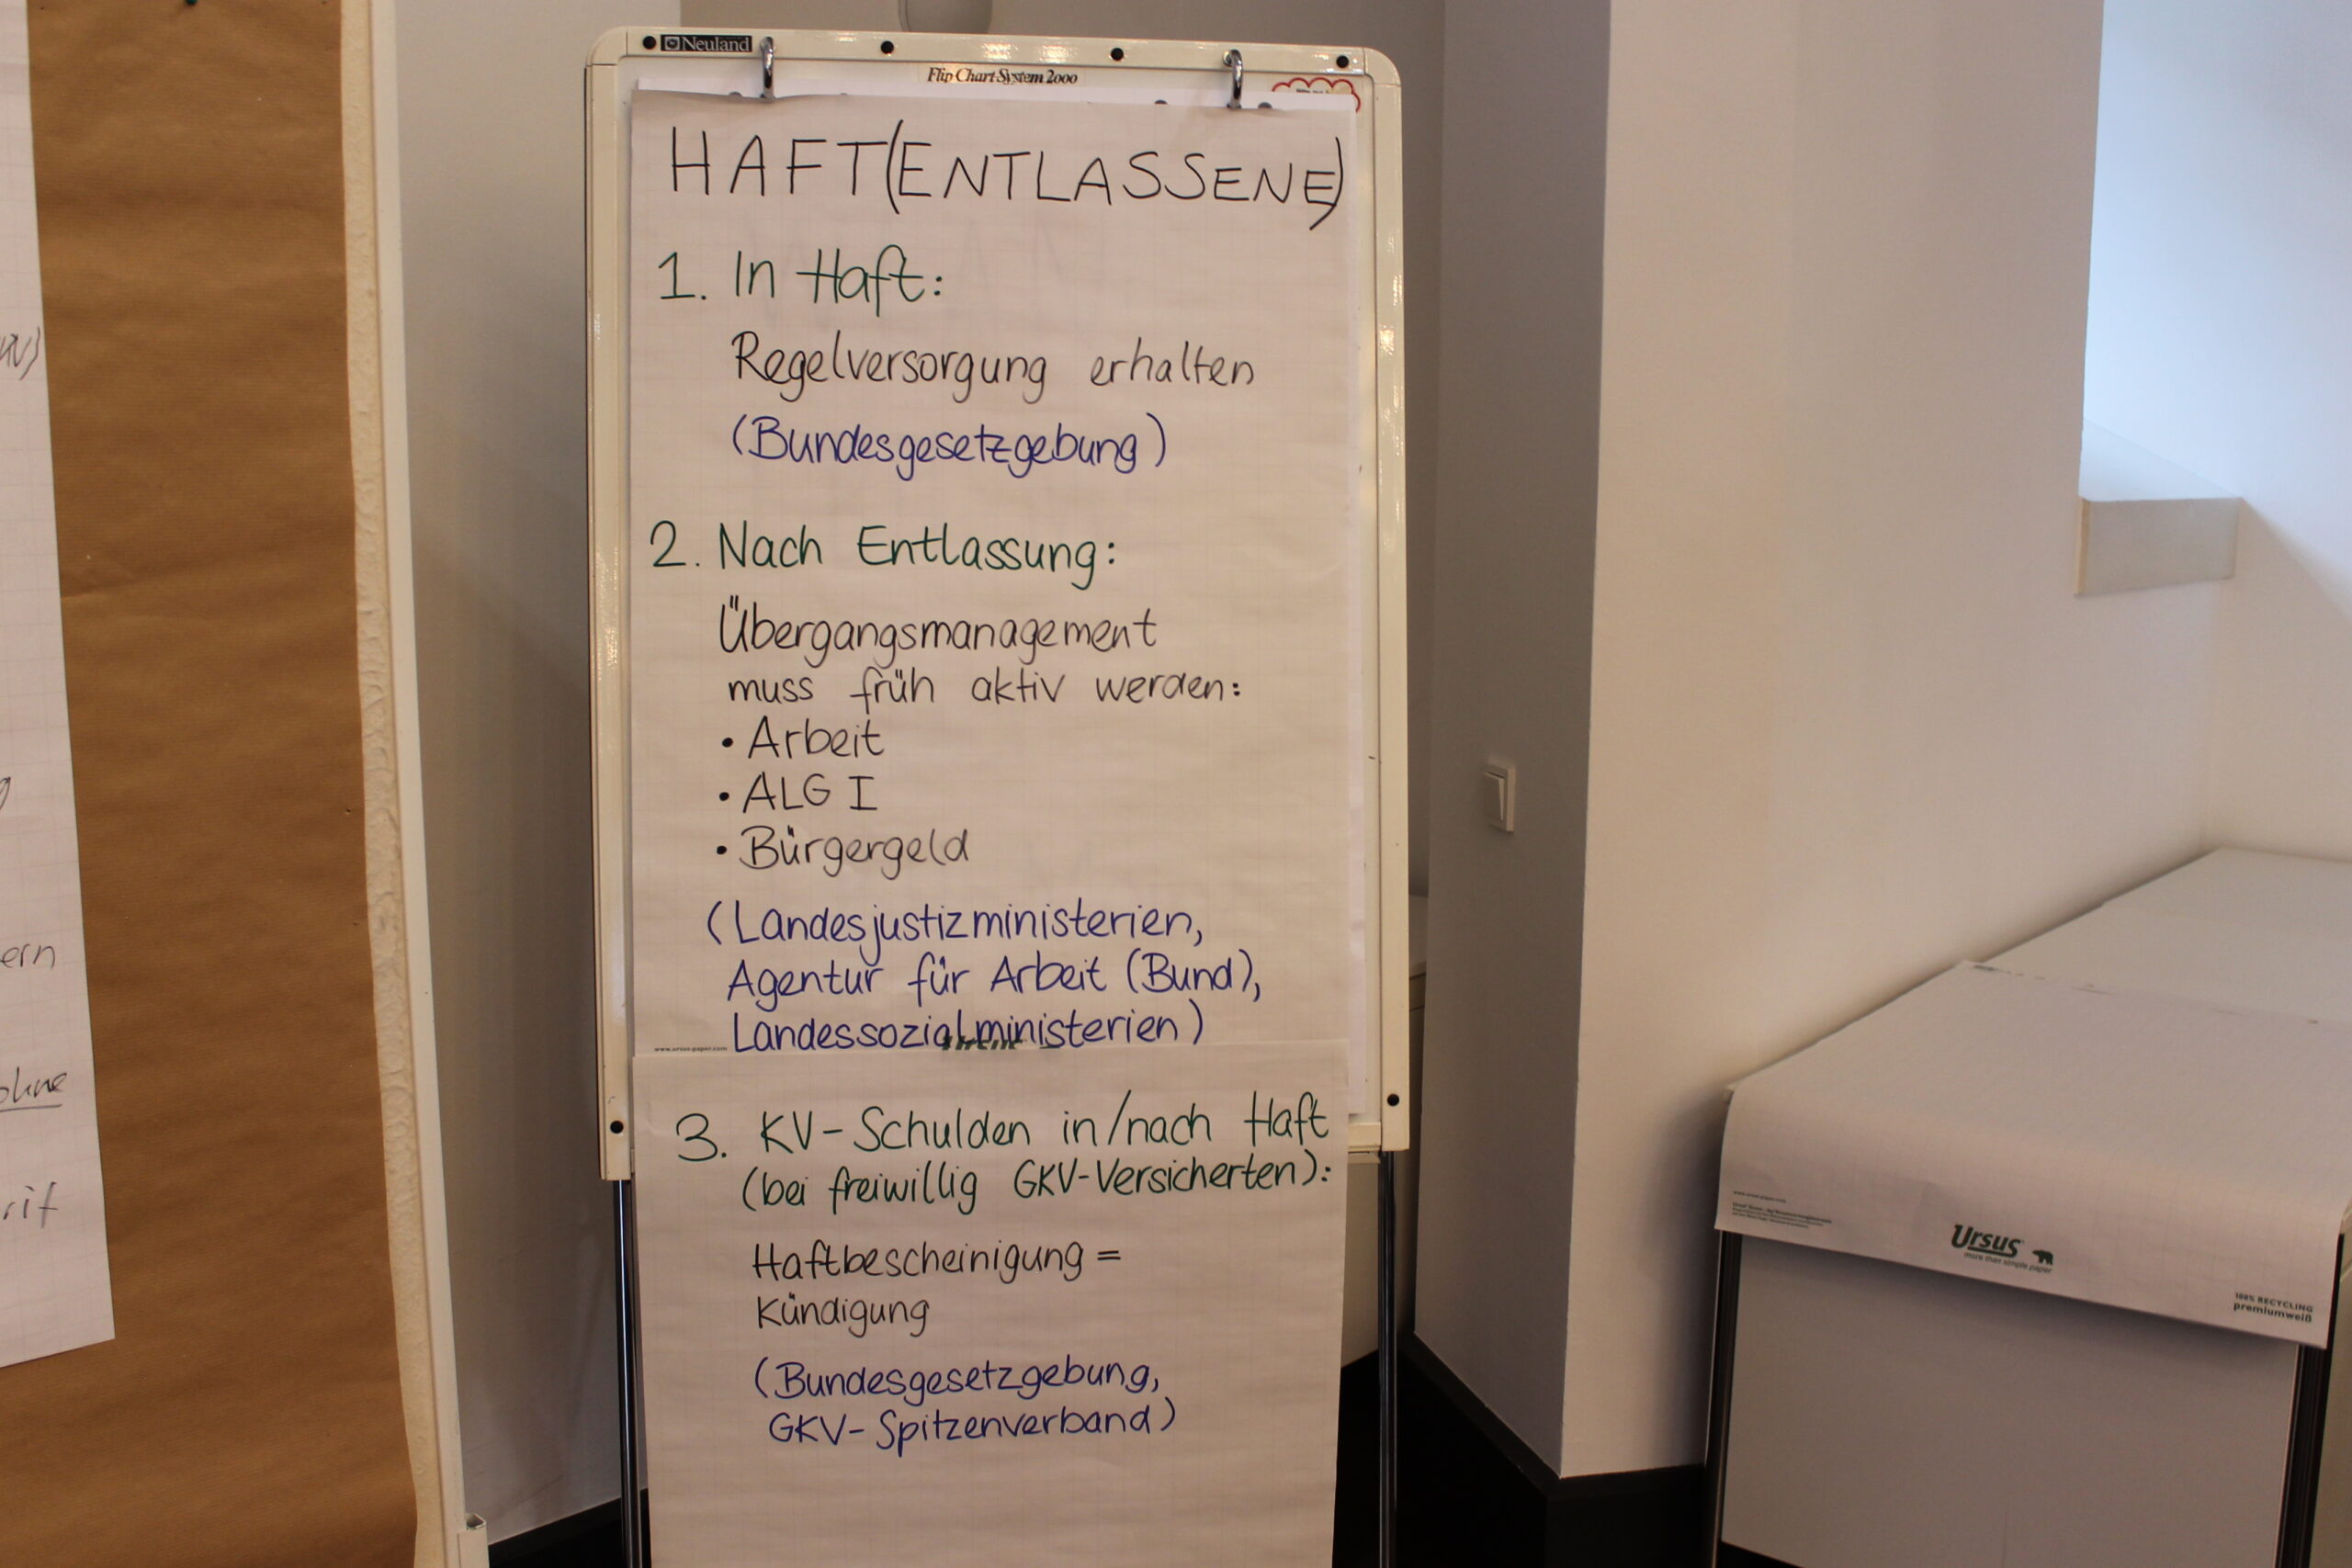 Neuland
Flip Chart System 2000
HAFT(ENTLASSENE)
1. In Haft:
Regelversorgung erhalten
(Bundesgesetzgebung)
2. Nach Entlassung:
Übergangsmanagement
muss früh aktiv werden:
• Arbeit
• ALG I
• Bürgergeld
(Landesjustizministerien,
Agentur für Arbeit (Bund),
Landessozialministerien)
www.ursus-paper.com
Ursus
3. KV-Schulden in/nach Haft
(bei freiwillig GKV-Versicherten):
Haftbescheinigung =
Kündigung
(Bundesgesetzgebung,
GKV-Spitzenverband)
ern
ohne
rif
Ursus
more than simple paper
100% RECYCLING
premiumweiß